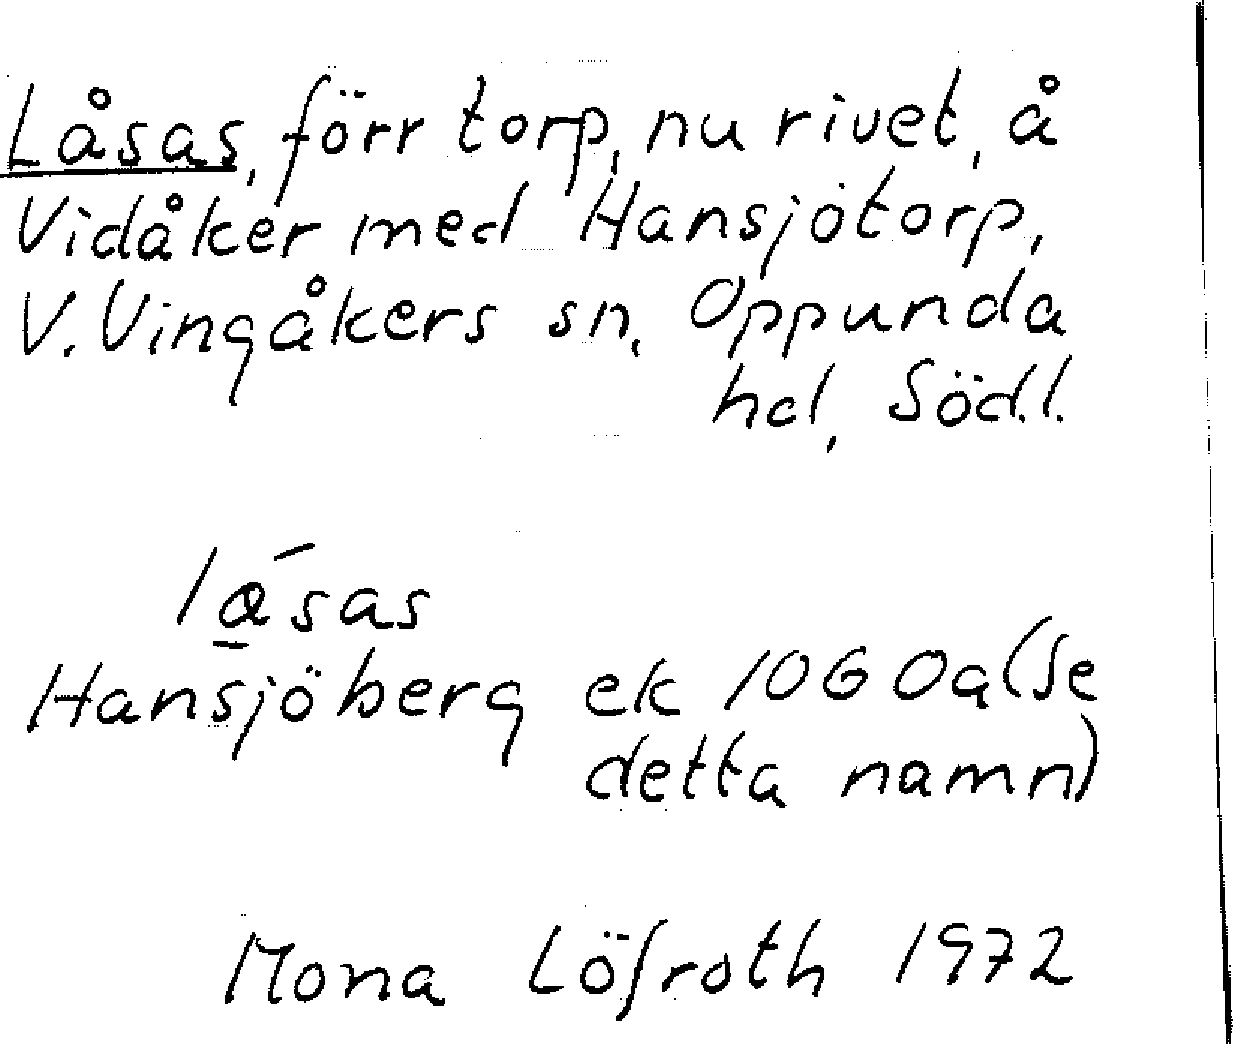 Låsas, förr torp, nu rivet, å
Vidåker med Hansjötorp,
V. Vingåkers sn, Oppunda
hd, Södl.
lå̱´sas
Hansjöberg ek 10G 0a (Se
detta namn)
Mona Löfroth 1972